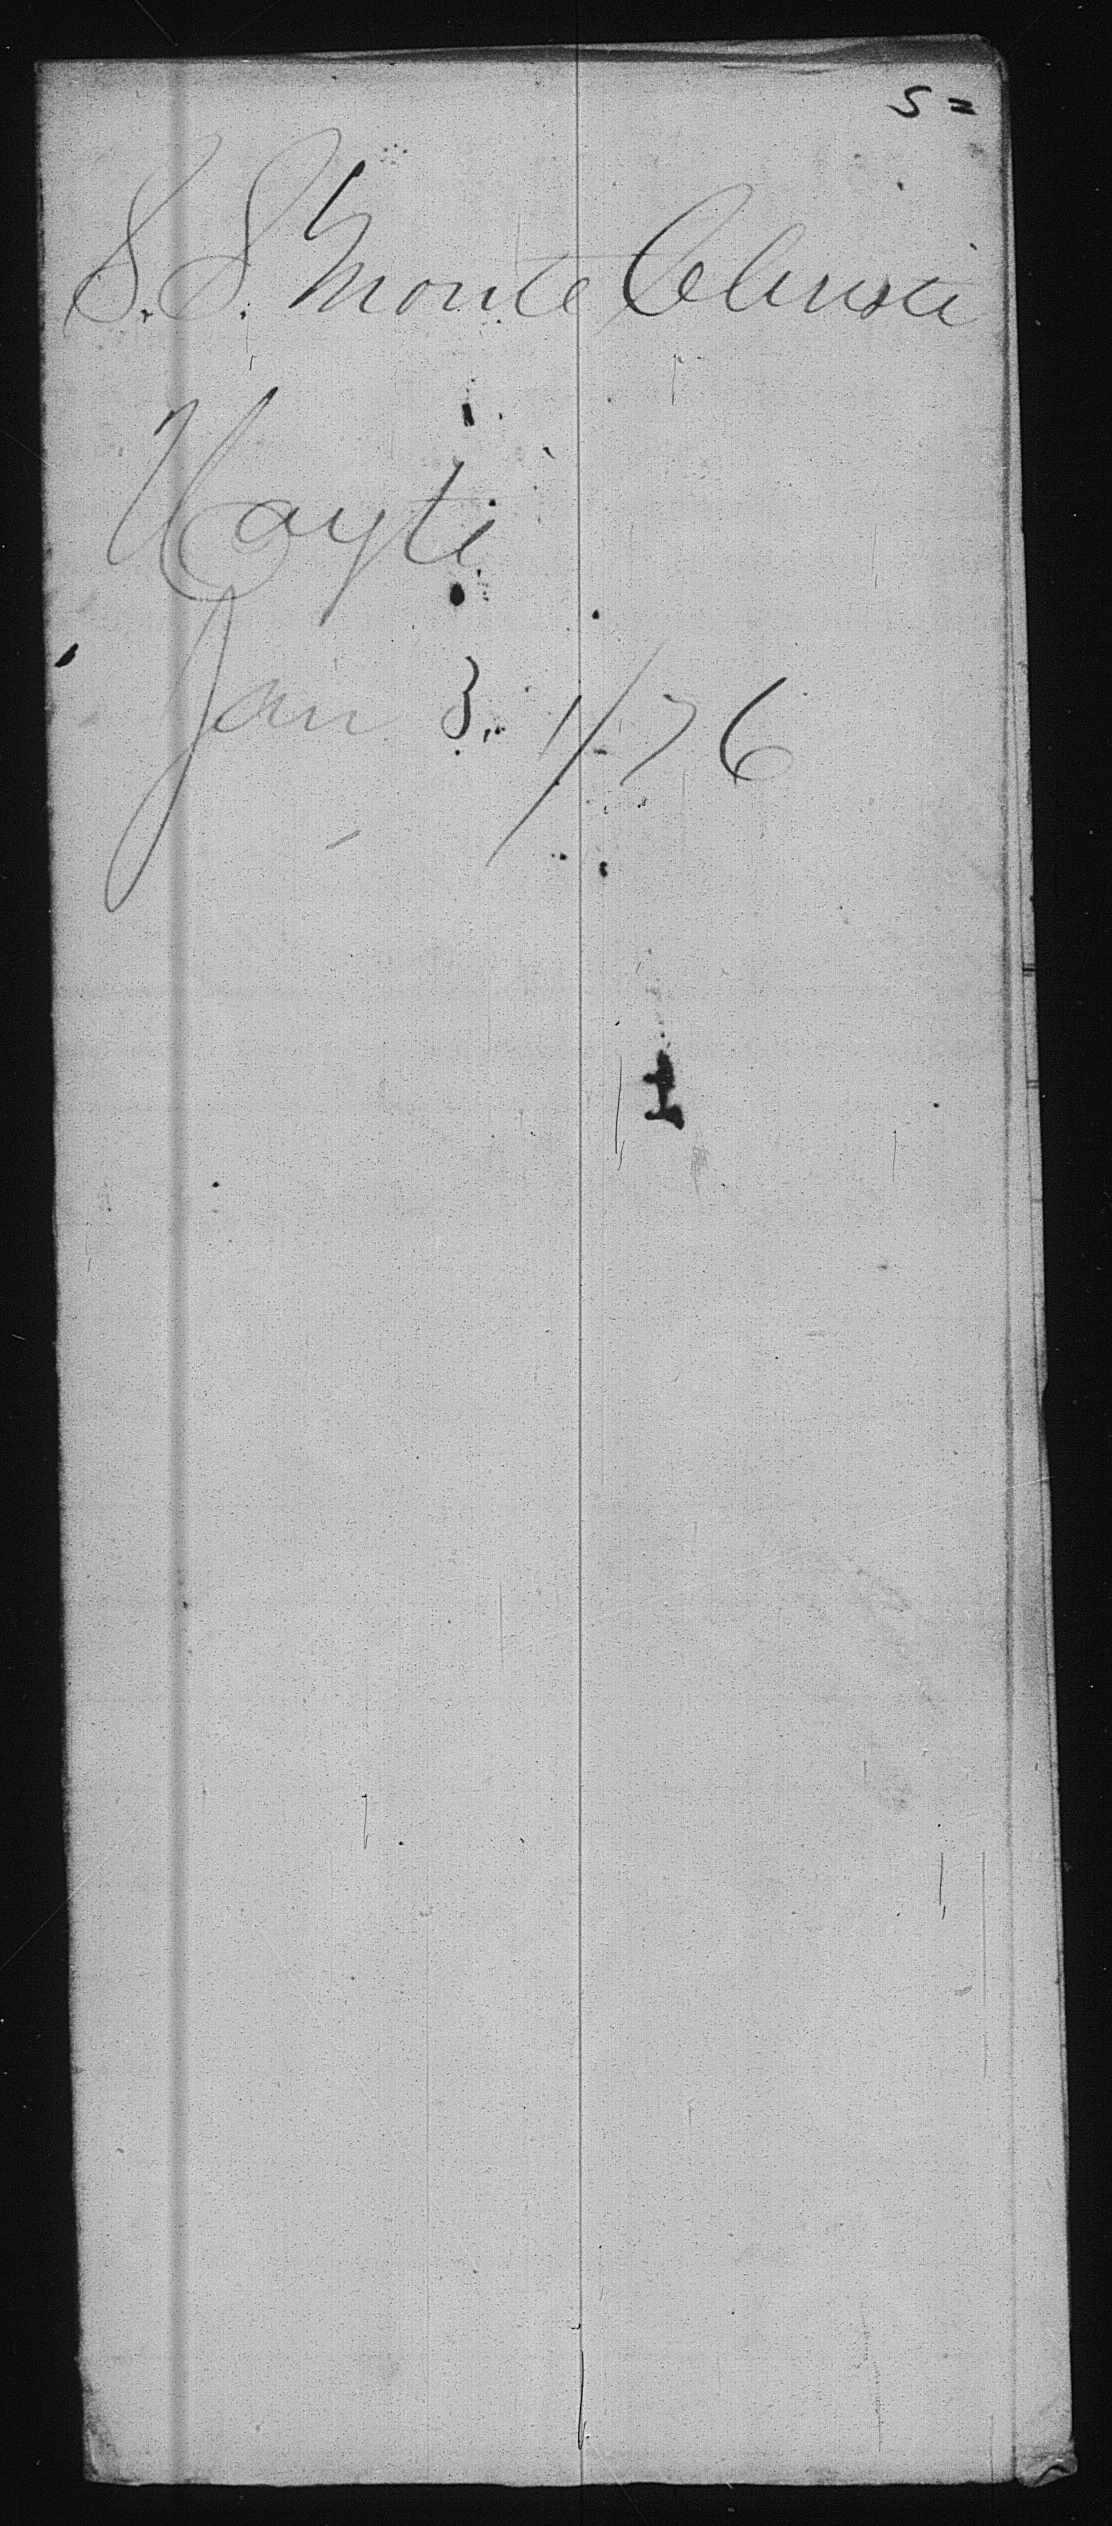 5=
S. S. Monte Christi
Hayti
Jan 3. 1/76